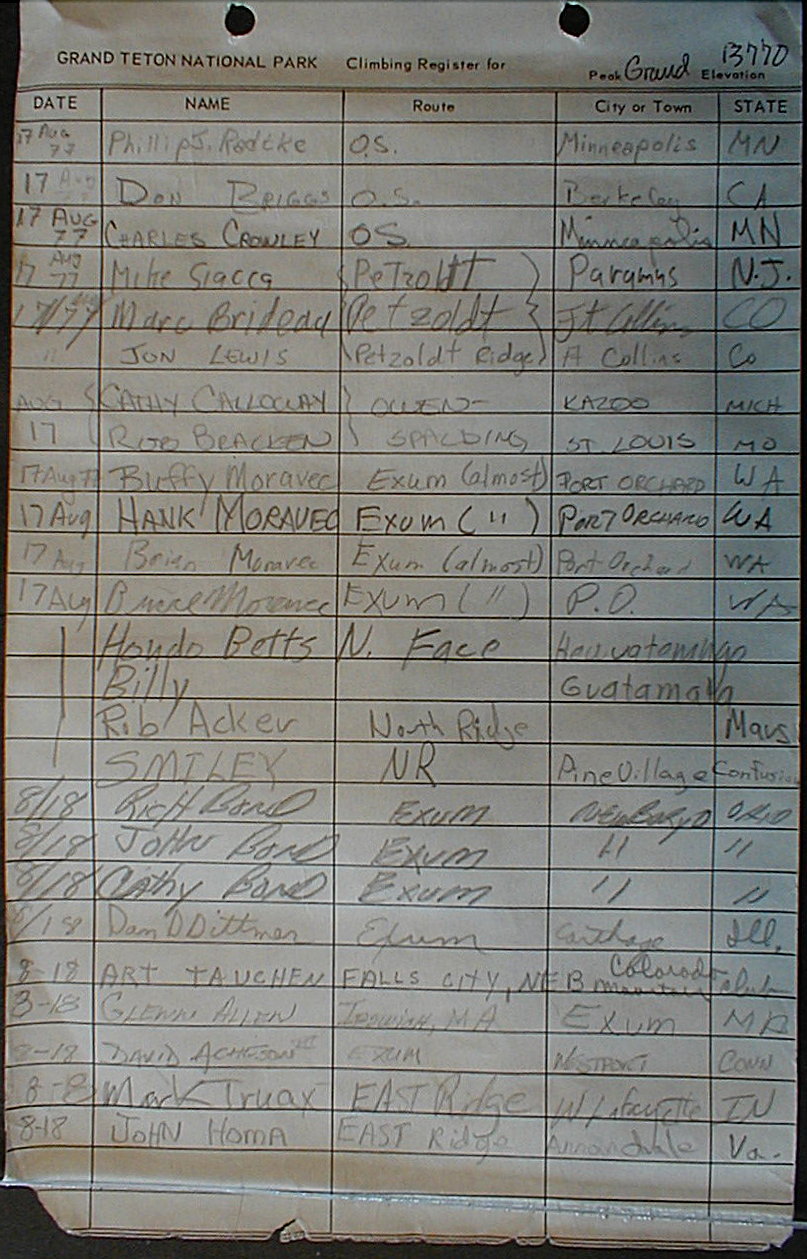 GRAND TETON NATIONAL PARK Climbing Register for Peak Grand Elevation 13770
DATE NAME Route City or Town STATE
17 Aug 77 Phillip J. Radcke O.S. Minneapolis MN
17 Aug DON BRIGGS O.S. Berkeley CA
17 AUG 77 CHARLES CROWLEY OS. Minneapolis MN
17 Aug 77 Mike Siacca Petzoldt Paramus N.J.
17/77 Marc Brideau Petzoldt Ft Collins CO
" JON LEWIS Petzoldt Ridge Ft Collins Co
AUG CATHY CALLOWAY OWEN- KAZOO MICH
17 ROB BRACKEN SPALDING ST. LOUIS MO
17 Aug 77 Buffy Moravec Exum (almost) PORT ORCHARD WA
17 Aug HANK MORAVEC Exum ( " ) PORT ORCHARD WA
17 Aug Brian Moravec Exum (almost) Port Orchard WA
17 Aug Bruce Moravec Exum ( " ) P.O. WA
Hondo Betts N. Face
Billy
Rib Acker North Ridge Mars
SMILEY NR Pine Village Confusion
8/18 Rich Bond Exum
8/18 JOHN Bond Exum " "
8/18 Cathy Bond Exum " "
8/18 Dan D Dittmer Exum Carthage Ill.
8-18 ART TAUCHEN FALLS CITY, NEB Colorado Mountain Club
8-18 GLENN ALLEN Ipswich, MA Exum MA
8-18 DAVID ACHESON III EXUM WESTPORT CONN
8-8 Mark Truax EAST Ridge W Lafayette IN
8-18 JOHN HOMA EAST Ridge Annandale Va.